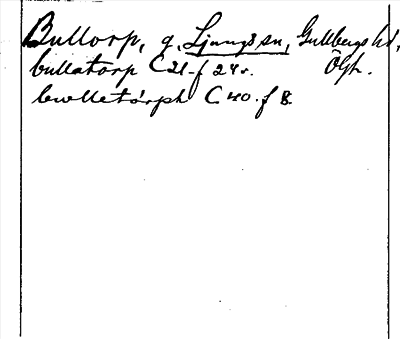 Bullorp, g. Ljungs sn, Gullbergs hd,
bullatorp C 21. f 24 r. Ögtl.
bwlletorph C 40. f 8.